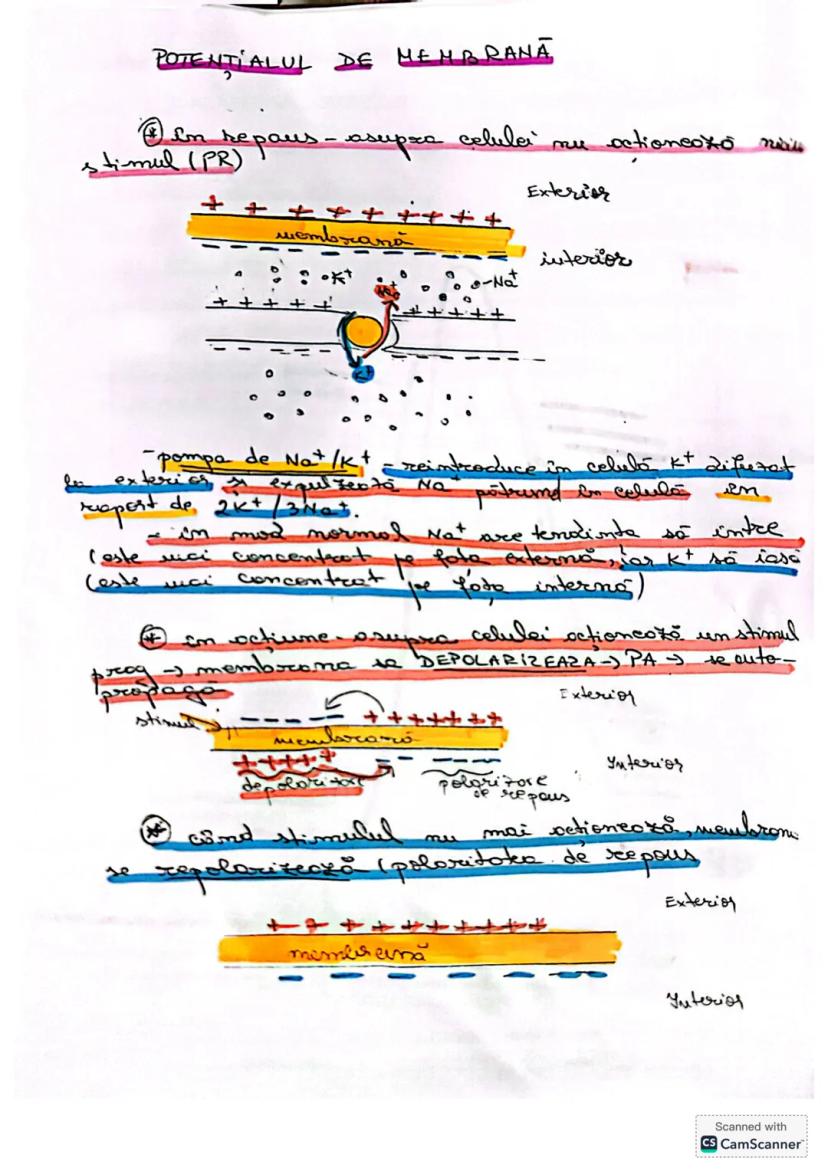 POTENȚIALUL DE MEMBRANĂ
* În repaus - asupra celulei nu acționează niciun
stimul (PR)
Exterior
+ + + + + + + + +
membrană
interior
K+
Na+
-Na+
+ + + + + + + + + +
K+
- pompa de Na+/K+ - reintroduce în celulă K+ difuzat
la exterior și expulzează Na+ pătruns în celulă în
raport de 2K+/3Na+.
- în mod normal Na+ are tendința să intre
(este mai concentrat pe fața externă, iar K+ să iasă
(este mai concentrat pe fața internă)
* În acțiune - asupra celulei acționează un stimul
prag → membrana se DEPOLARIZEAZĂ → PA → se auto-
propagă
Exterior
stimul
- - - - - + + + + + + +
membrană
+ + + + + - - - - - -
Interior
depolarizare
polarizare
de repaus
* când stimulul nu mai acționează, membrana
se repolarizează (polaritatea de repaus
Exterior
+ + + + + + + + + +
membrană
- - - - - - - -
Interior
Scanned with
CS CamScanner